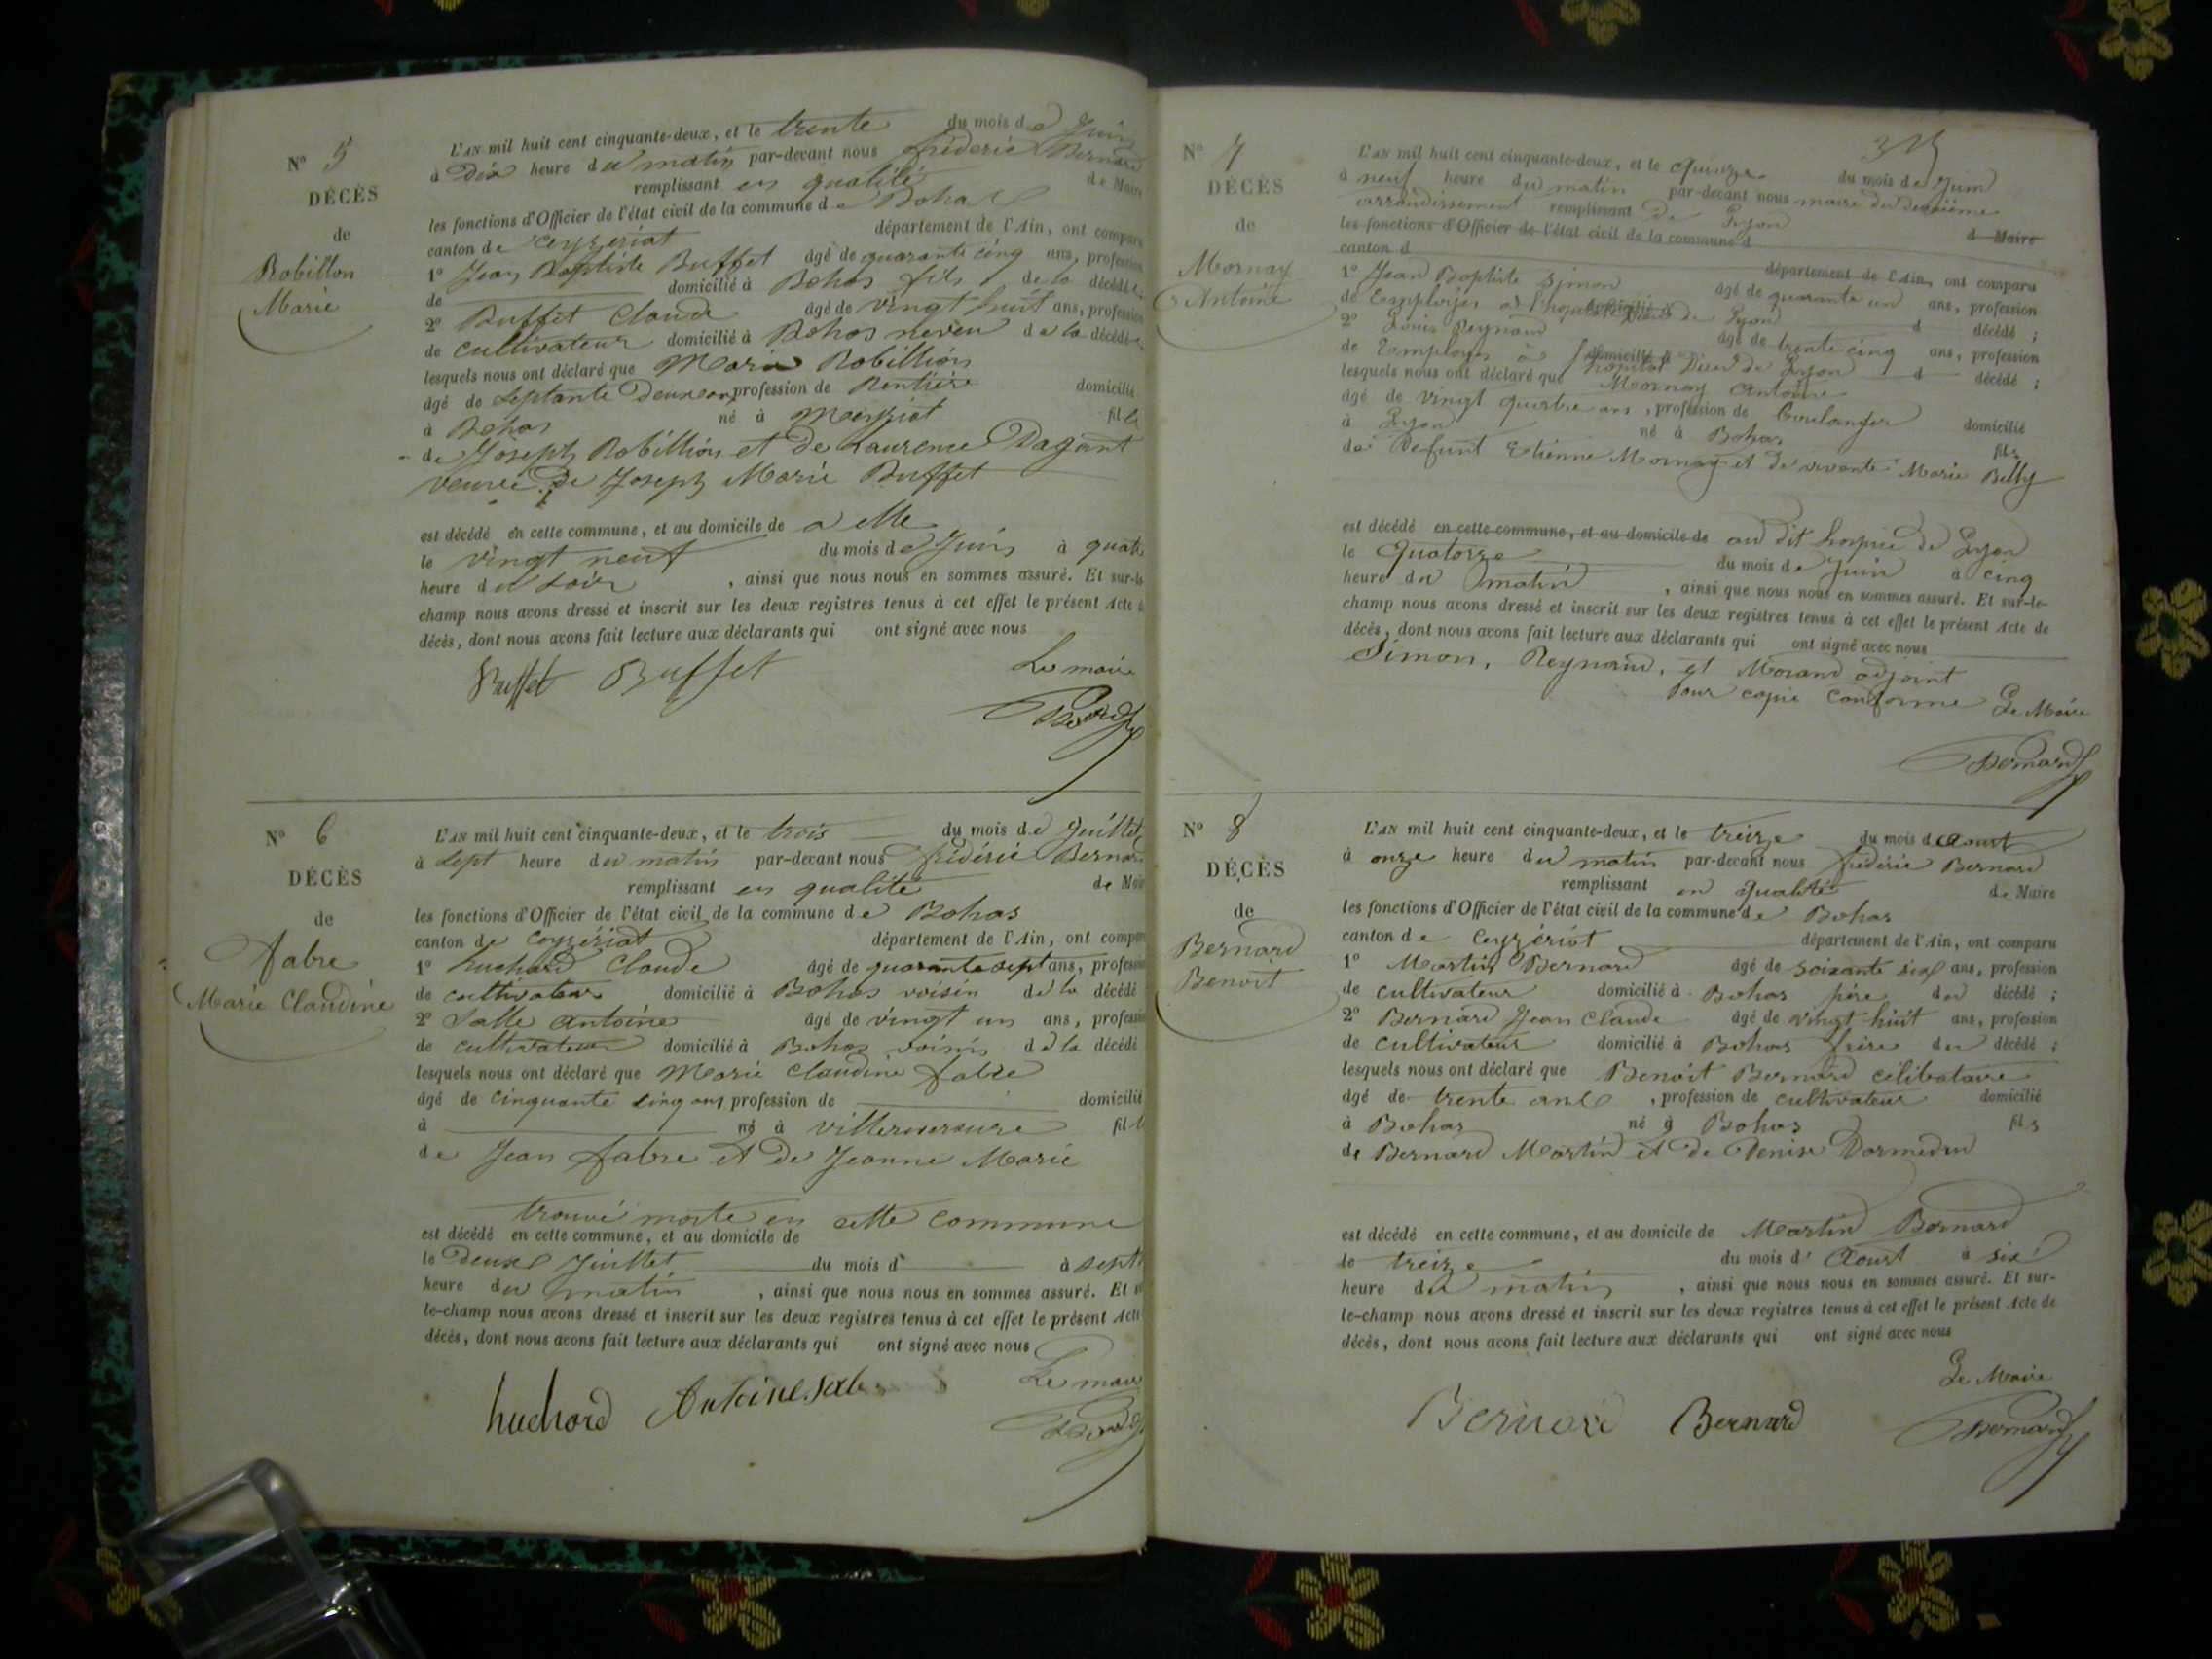 N° 5
DÉCÈS
de
Robillon
Marie
L'AN mil huit cent cinquante-deux, et le trente du mois de Juin
à Dix heure du matin par-devant nous frédéric Bernard
remplissant en qualité de Maire
les fonctions d'Officier de l'état civil de la commune de Bohas
canton de ceyzeriat département de l'Ain, ont comparu
1° Jean Baptiste Buffet âgé de quarante cinq ans, profession
de domicilié à Bohas fils de la décédée
2° Buffet Claude âgé de vingt huit ans, profession
de cultivateur domicilié à Bohas neveu de la décédée
lesquels nous ont déclaré que Marie Robillion
âgé de septante deux ans profession de Rentière domicilié
à Bohas né à Meyriat fille
de Joseph Robillion et de Laurence Dagant
veuve de Joseph Marie Buffet
est décédé en cette commune, et au domicile de a elle
le vingt neuf du mois de Juin à quatre
heure du soir , ainsi que nous nous en sommes assuré. Et sur-le-
champ nous avons dressé et inscrit sur les deux registres tenus à cet effet le présent Acte de
décès, dont nous avons fait lecture aux déclarants qui ont signé avec nous
Buffet Buffet Le maire
Bernard
N° 6
DÉCÈS
de
fabre
Marie Claudine
L'AN mil huit cent cinquante-deux, et le trois du mois de Juillet
à sept heure du matin par-devant nous frédéric Bernard
remplissant en qualité de Maire
les fonctions d'Officier de l'état civil de la commune de Bohas
canton de Ceyzériat département de l'Ain, ont comparu
1° huchard Claude âgé de quarante sept ans, profession
de cultivateur domicilié à Bohas voisin de la décédé
2° Salle Antoine âgé de vingt un ans, profession
de cultivateur domicilié à Bohas voisin de la décédé
lesquels nous ont déclaré que Marie Claudine fabre
âgé de cinquante cinq ans profession de domicilié
à né à villereversure fille
de Jean fabre et de Jeanne Marie
trouvé morte en cette commune
est décédé en cette commune, et au domicile de
le Deux Juillet du mois d à sept
heure du matin , ainsi que nous nous en sommes assuré. Et sur-
le-champ nous avons dressé et inscrit sur les deux registres tenus à cet effet le présent Acte
décès, dont nous avons fait lecture aux déclarants qui ont signé avec nous
huchard Antoine Sale Le maire
Bernard
N° 7
DÉCÈS
de
Mornay
Antoine
L'AN mil huit cent cinquante-deux, et le quinze du mois de Juin
à neuf heure du matin par-devant nous maire du deuxième
arrondissement remplissant de Lyon
les fonctions d'Officier de l'état civil de la commune d d Maire
canton d département de l'Ain, ont comparu
1° Jean Baptiste Simon âgé de quarante un ans, profession
de Employés à l'hopital Dieu de Lyon d décédé ;
2° Louis Reynaud âgé de trente cinq ans, profession
de Employés à domicilié à l'hopital Dieu de Lyon d décédé ;
lesquels nous ont déclaré que Mornay Antoine
âgé de vingt quatre ans , profession de boulanger domicilié
à Lyon né à Bohas fils
de Defunt Etienne Mornay et de vivante Marie Billy
est décédé en cette commune, et au domicile de au dit hospice de Lyon
le Quatorze du mois de Juin à cinq
heure du matin , ainsi que nous nous en sommes assuré. Et sur-le-
champ nous avons dressé et inscrit sur les deux registres tenus à cet effet le présent Acte de
décès, dont nous avons fait lecture aux déclarants qui ont signé avec nous
Simon, Reynaud, et Morand adjoint
Pour copie Conforme Le Maire
Bernard
N° 8
DÉCÈS
de
Bernard
Benoit
L'AN mil huit cent cinquante-deux, et le treize du mois d aoust
à onze heure du matin par-devant nous frédéric Bernard
remplissant en qualité de Maire
les fonctions d'Officier de l'état civil de la commune de Bohas
canton de Ceyzériat département de l'Ain, ont comparu
1° Martin Bernard âgé de soixante six ans, profession
de cultivateur domicilié à Bohas père du décédé ;
2° Bernard Jean Claude âgé de vingt huit ans, profession
de cultivateur domicilié à Bohas frère du décédé ;
lesquels nous ont déclaré que Benoit Bernard célibataire
âgé de trente ans , profession de cultivateur domicilié
à Bohas né à Bohas fils
de Bernard Martin et de Denise Darmedru
est décédé en cette commune, et au domicile de Martin Bernard
le treize du mois d' Aoust à six
heure du matin , ainsi que nous nous en sommes assuré. Et sur-
le-champ nous avons dressé et inscrit sur les deux registres tenus à cet effet le présent Acte de
décès, dont nous avons fait lecture aux déclarants qui ont signé avec nous
Le Maire
Bernard Bernard Bernard